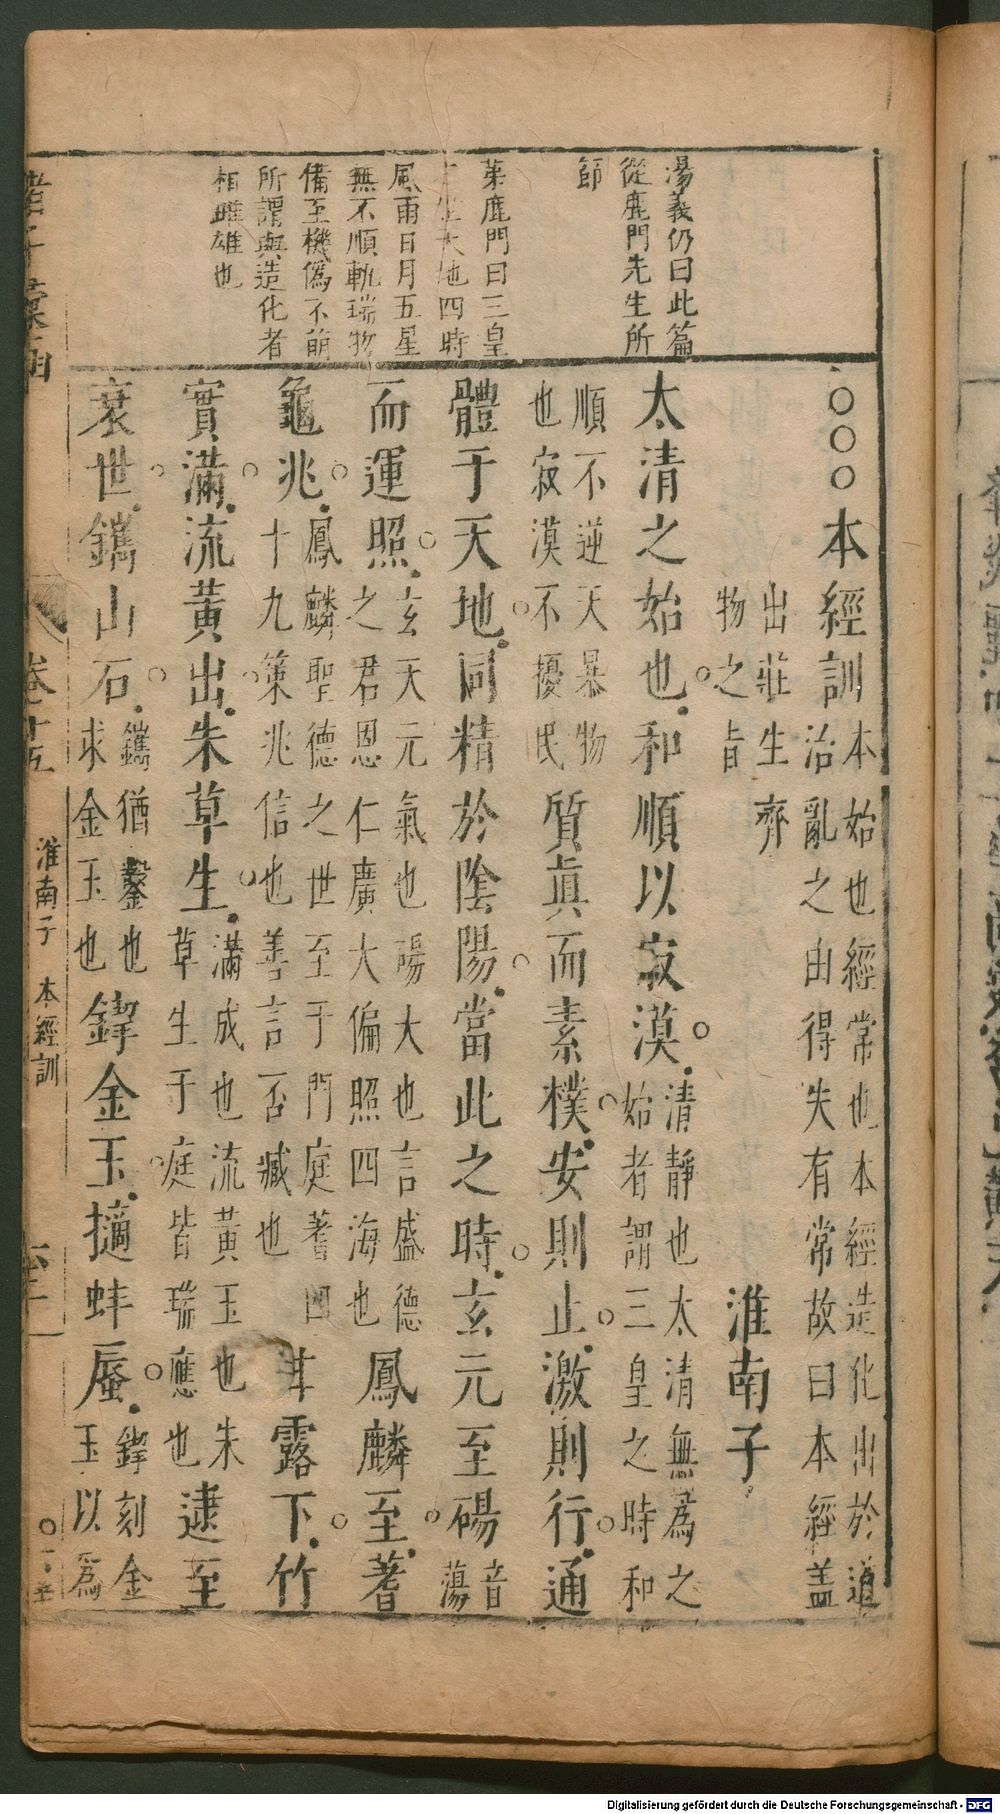 湯義仍曰此篇
從鹿門先生所
節
茅鹿門曰三皇
天地四時
風雨日月五星
無不順軌瑞物
備至機偽不萌
所謂與造化者
相雌雄也
○○○本經訓本始也經常也本經造化出於道
治亂之由得失有常故曰本經盖
出莊生齊
物之旨
淮南子
太清之始也和順以寂漠清靜也太清無為之
始者謂三皇之時和
順不逆天暴物
也寂漠不擾民
質真而素樸安則止激則行通
體于天地同精於陰陽當此之時玄元至碭音
蕩
而運照玄天元氣也碭大也言盛德
之君恩仁廣大偏照四海也
鳳麟至蓍
龜兆鳳麟聖德之世至于門庭蓍四
十九策兆信也善言否臧也
甘露下竹
實滿流黃出朱草生滿成也流黃玉也朱
草生于庭皆瑞應也
逮至
衰世鐫山石鐫猶鑿也
求金玉也
鍥金玉擿蚌蜃鍥刻金
玉以為
諸子彙函 卷十五 淮南子 本經訓
Digitalisierung gefördert durch die Deutsche Forschungsgemeinschaft - DFG